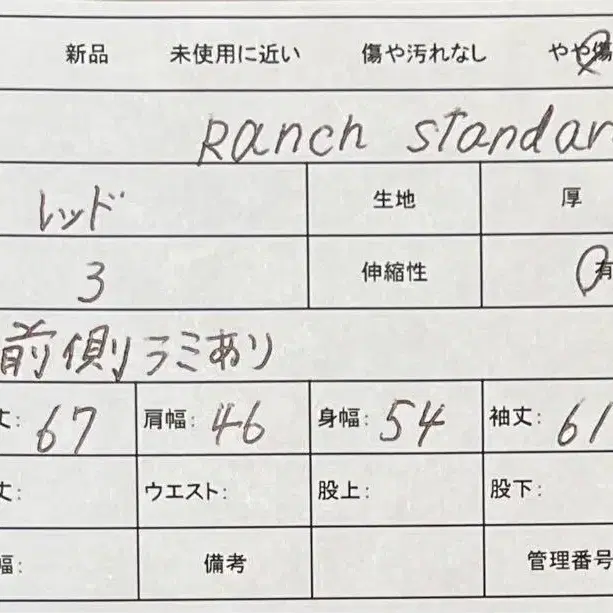 新品 未使用に近い 傷や汚れなし やや傷
Ranch standar
レッド 生地 厚
3 伸縮性 有
前側ラミあり
丈: 67 肩幅: 46 身幅: 54 袖丈: 61
丈: ウエスト: 股上: 股下:
幅: 備考 管理番号